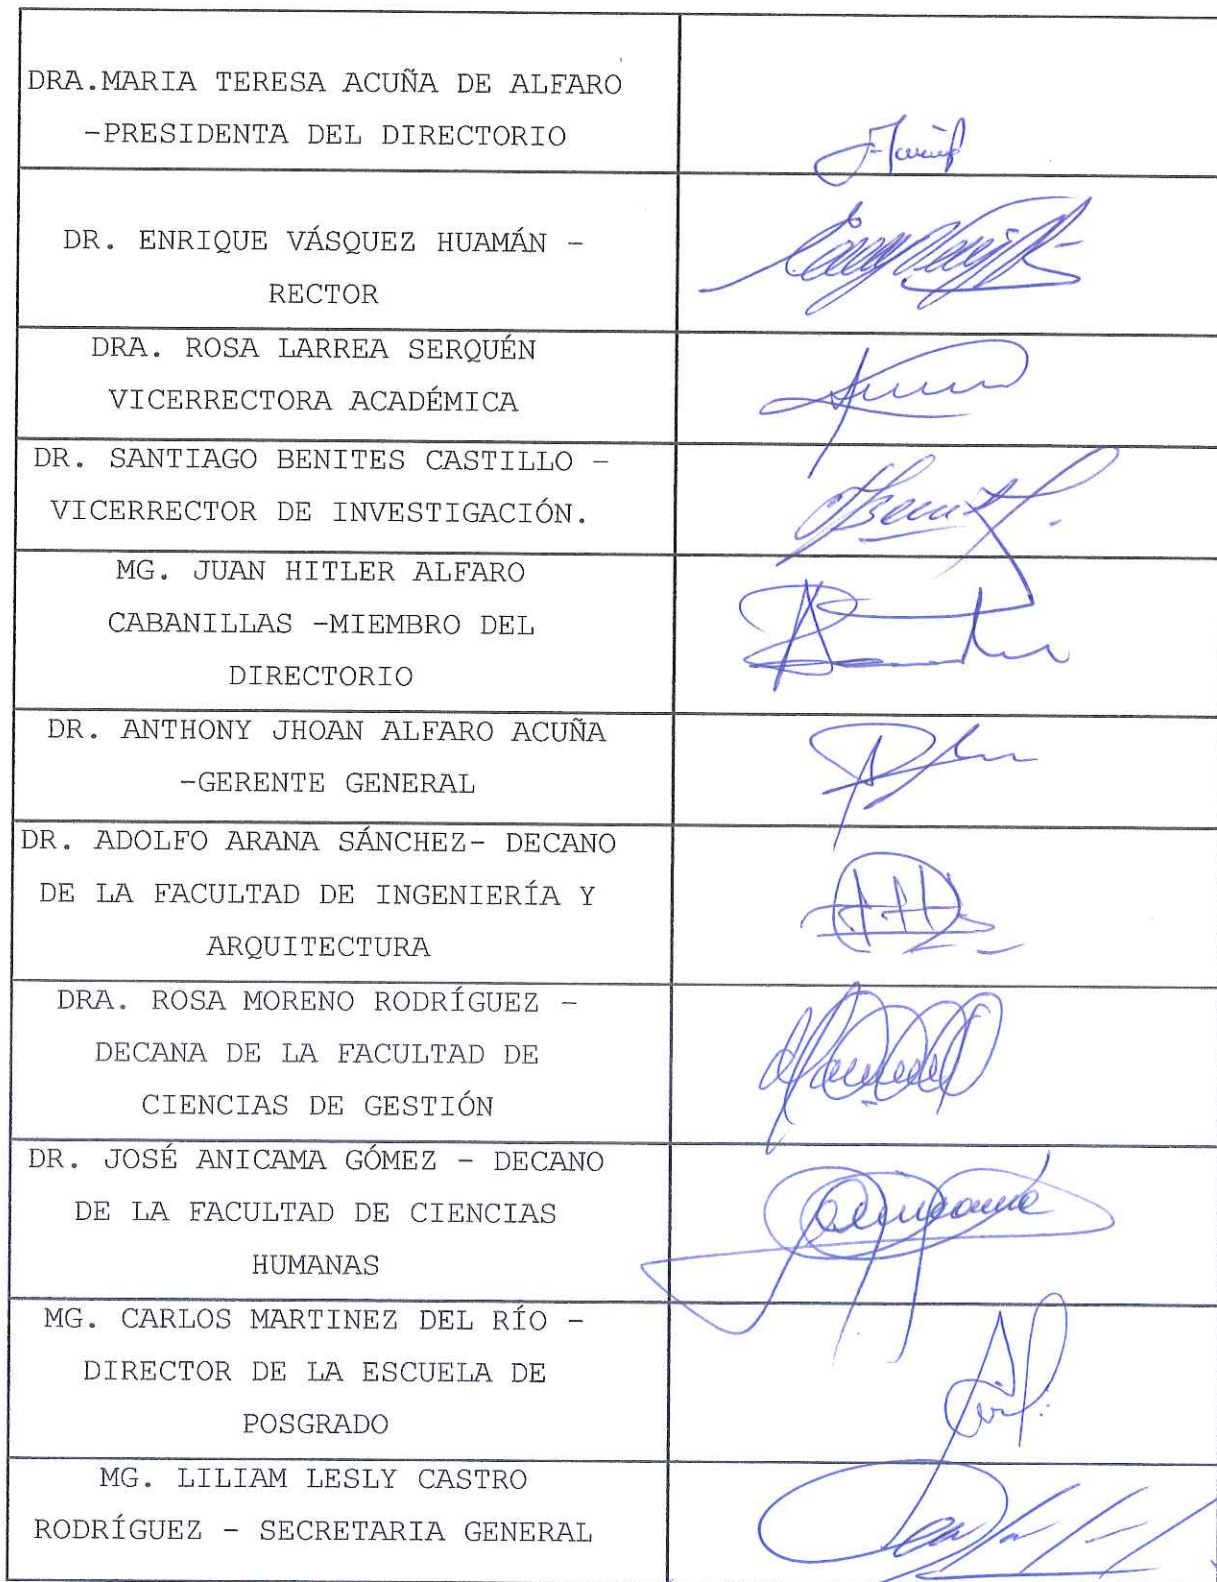 DRA.MARIA TERESA ACUÑA DE ALFARO
-PRESIDENTA DEL DIRECTORIO
DR. ENRIQUE VÁSQUEZ HUAMÁN -
RECTOR
DRA. ROSA LARREA SERQUÉN
VICERRECTORA ACADÉMICA
DR. SANTIAGO BENITES CASTILLO -
VICERRECTOR DE INVESTIGACIÓN.
MG. JUAN HITLER ALFARO
CABANILLAS -MIEMBRO DEL
DIRECTORIO
DR. ANTHONY JHOAN ALFARO ACUÑA
-GERENTE GENERAL
DR. ADOLFO ARANA SÁNCHEZ- DECANO
DE LA FACULTAD DE INGENIERÍA Y
ARQUITECTURA
DRA. ROSA MORENO RODRÍGUEZ -
DECANA DE LA FACULTAD DE
CIENCIAS DE GESTIÓN
DR. JOSÉ ANICAMA GÓMEZ - DECANO
DE LA FACULTAD DE CIENCIAS
HUMANAS
MG. CARLOS MARTINEZ DEL RÍO -
DIRECTOR DE LA ESCUELA DE
POSGRADO
MG. LILIAM LESLY CASTRO
RODRÍGUEZ - SECRETARIA GENERAL